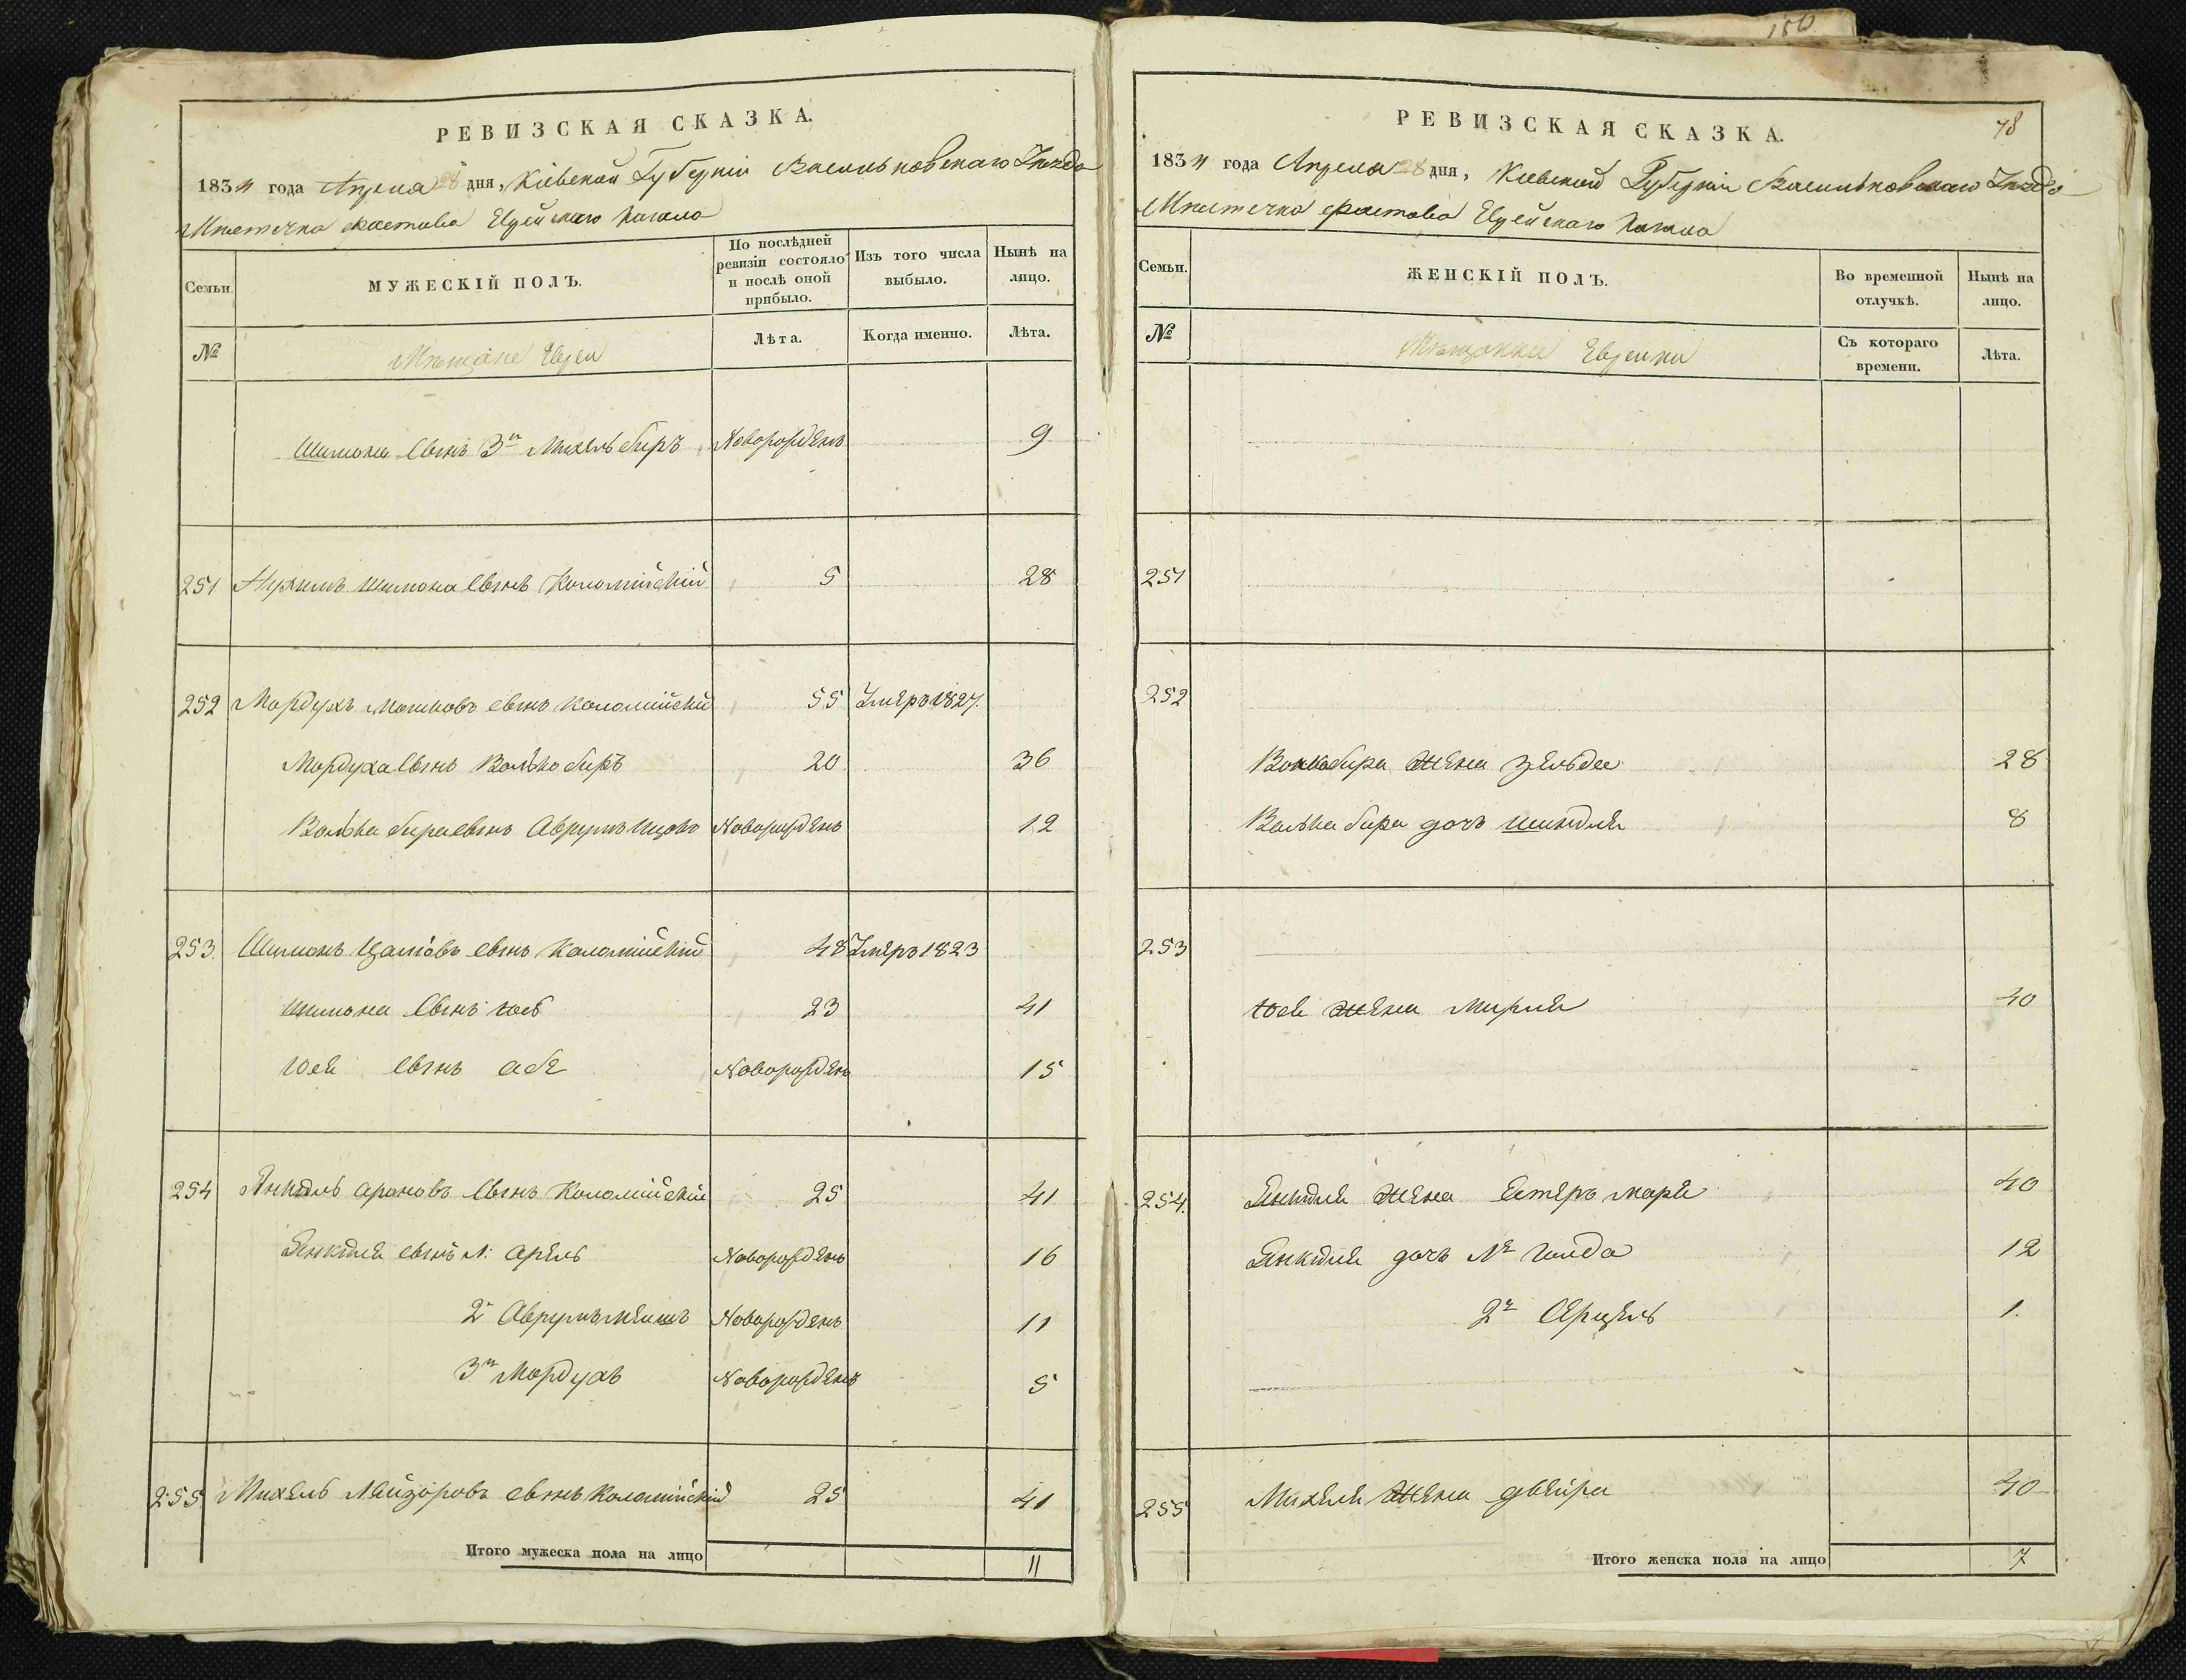 150
РЕВИЗСКАЯ СКАЗКА.
1834 года Апреля 28 дня, Кіевской Губерніи Васильковскаго Уезда
Местечка Фастова Еврейскаго Кагала
Семьи.
МУЖЕСКІЙ ПОЛЪ.
По послѣдней ревизіи состояло и послѣ оной прибыло.
Изъ того числа выбыло.
Нынѣ на лицо.
№
Мещане Евреи
Лѣта.
Когда именно.
Лѣта.
Шимона Сынъ 3й Михель беръ Новорожденъ 9
251 Нухимъ Шимона Сынъ Коломійскій 5 28
252 Мордухъ Мошковъ сынъ Коломійскій 55 Умеръ 1827.
Мордуха Сынъ Волько беръ 20 36
Волька бера сынъ Аврумъ Ицокъ Новорожденъ 12
253. Шимонъ сынъ Коломійскій 48 Умеръ 1823
Шимона Сынъ Юсь 23 41
Юся сынъ Абе Новорожденъ 15
254 Янкель Ароновъ Сынъ Коломійскій 25 41
Янкеля сынъ 1: Арель Новорожденъ 16
2й Аврумъ Меишъ Новорожденъ 11
3й Мордухъ Новорожденъ 5
255 Михель сынъ Коломійскій 25 41
Итого мужеска пола на лицо 11
РЕВИЗСКАЯ СКАЗКА.
78
1834 года Апреля 28 дня, Кіевской Губерніи Васильковскаго Уезда
Местечка Фастова Еврейскаго Кагала
Семьи.
ЖЕНСКІЙ ПОЛЪ.
Во временной отлучкѣ.
Нынѣ на лицо.
№
Мещанки Еврейки
Съ котораго времени.
Лѣта.
251
252
Волькабера Жена Зельда 28
Волька бера дочь Шиндля 8
253
Юся Жена Мирля 40
254. Янкеля Жена Естеръ Маря 40
Янкеля дочь 1я Голда 12
2я 1.
255 Михеля Жена Двейра 40
Итого женска пола на лицо 7